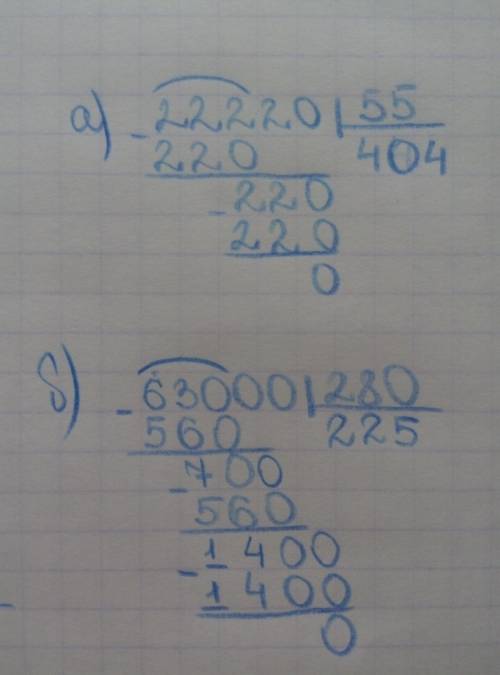 а) - 22220 | 55
220 404
- 220
220
0
б) - 63000 | 280
560 225
- 700
560
- 1400
1400
0